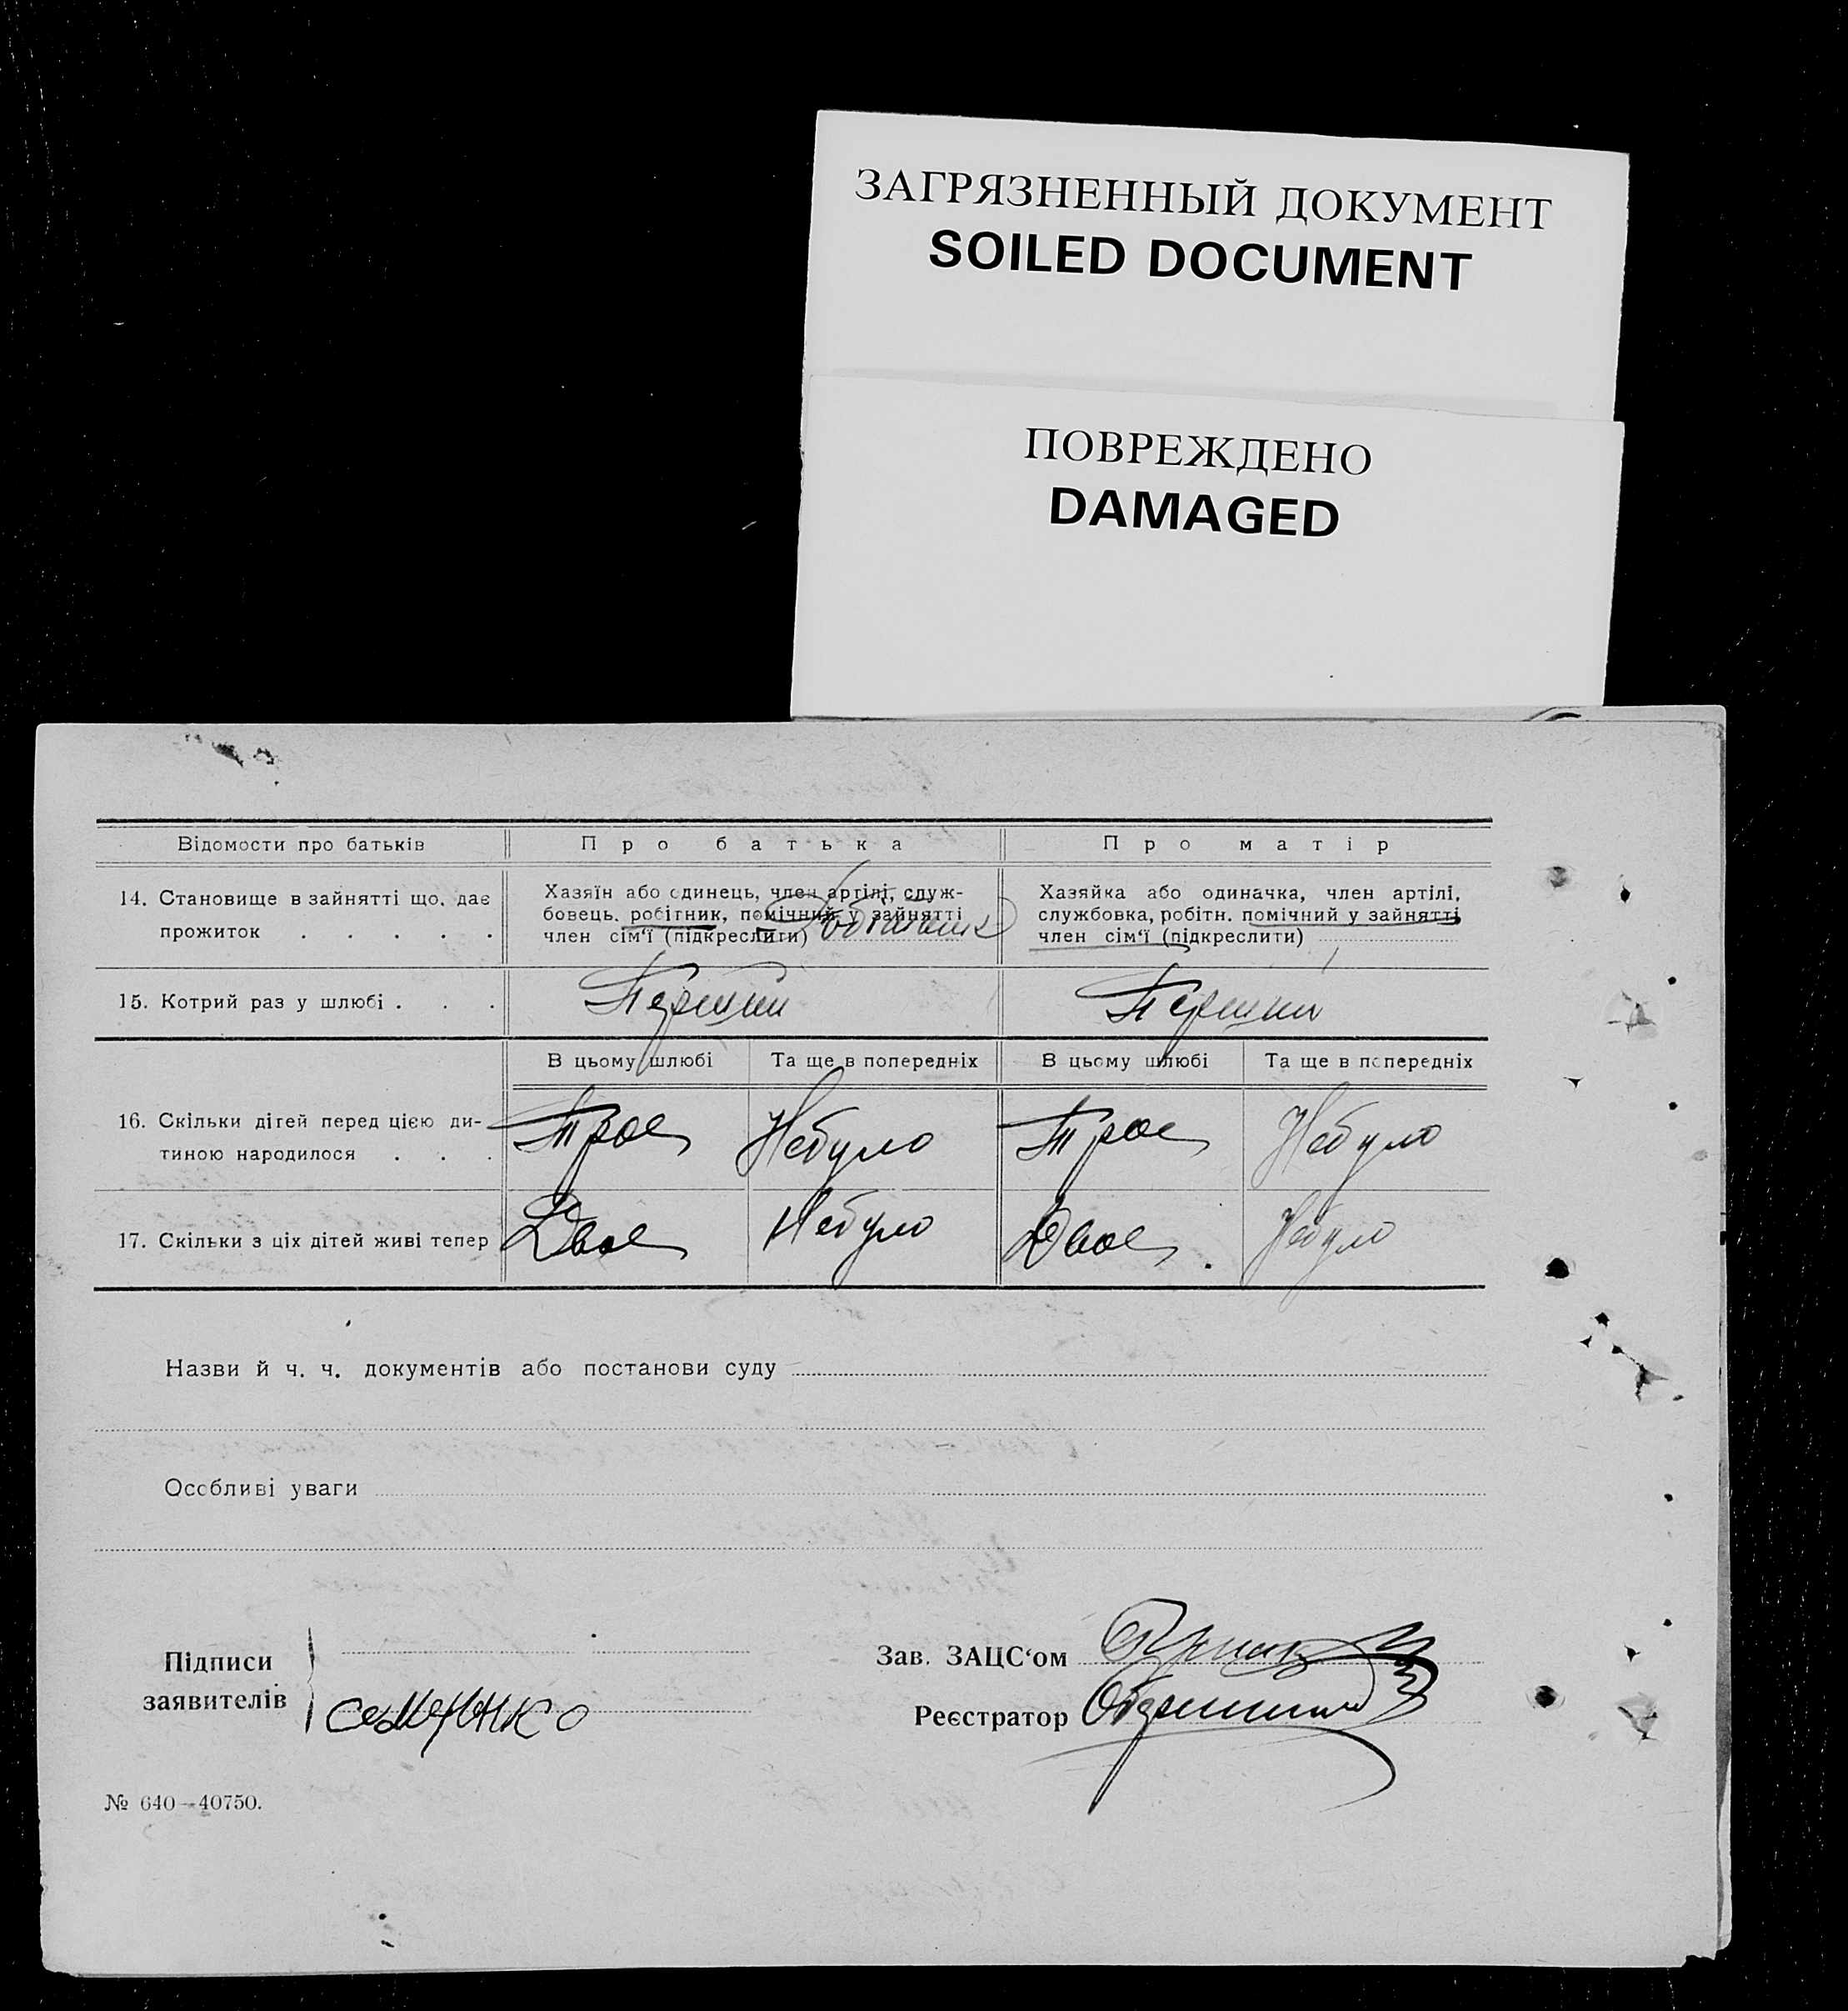 ЗАГРЯЗНЕННЫЙ ДОКУМЕНТ
SOILED DOCUMENT
ПОВРЕЖДЕНО
DAMAGED
Відомости про батьків Про батька Про матір
14. Становище в зайнятті що, дає
прожиток . . . . .
Хазяїн або єдинець, член артілі, служ-
бовець, робітник, помічний у зайнятті
член сім'ї (підкреслити)
Хазяйка або одиначка, член артілі,
службовка, робітн. помічний у зайнятті
член сім'ї (підкреслити)
15. Котрий раз у шлюбі . . . Перший Перший
В цьому шлюбі Та ще в попередніх В цьому шлюбі Та ще в попередніх
16. Скільки дітей перед цією ди-
тиною народилося . . .
Троє Небуло Троє Небуло
17. Скільки з ціх дітей живі тепер Двоє Небуло Двоє Небуло
Назви й ч. ч. документів або постанови суду
Особливі уваги
Підписи
заявителів
Семенко
Зав. ЗАЦС'ом
Реєстратор
№ 640—40750.